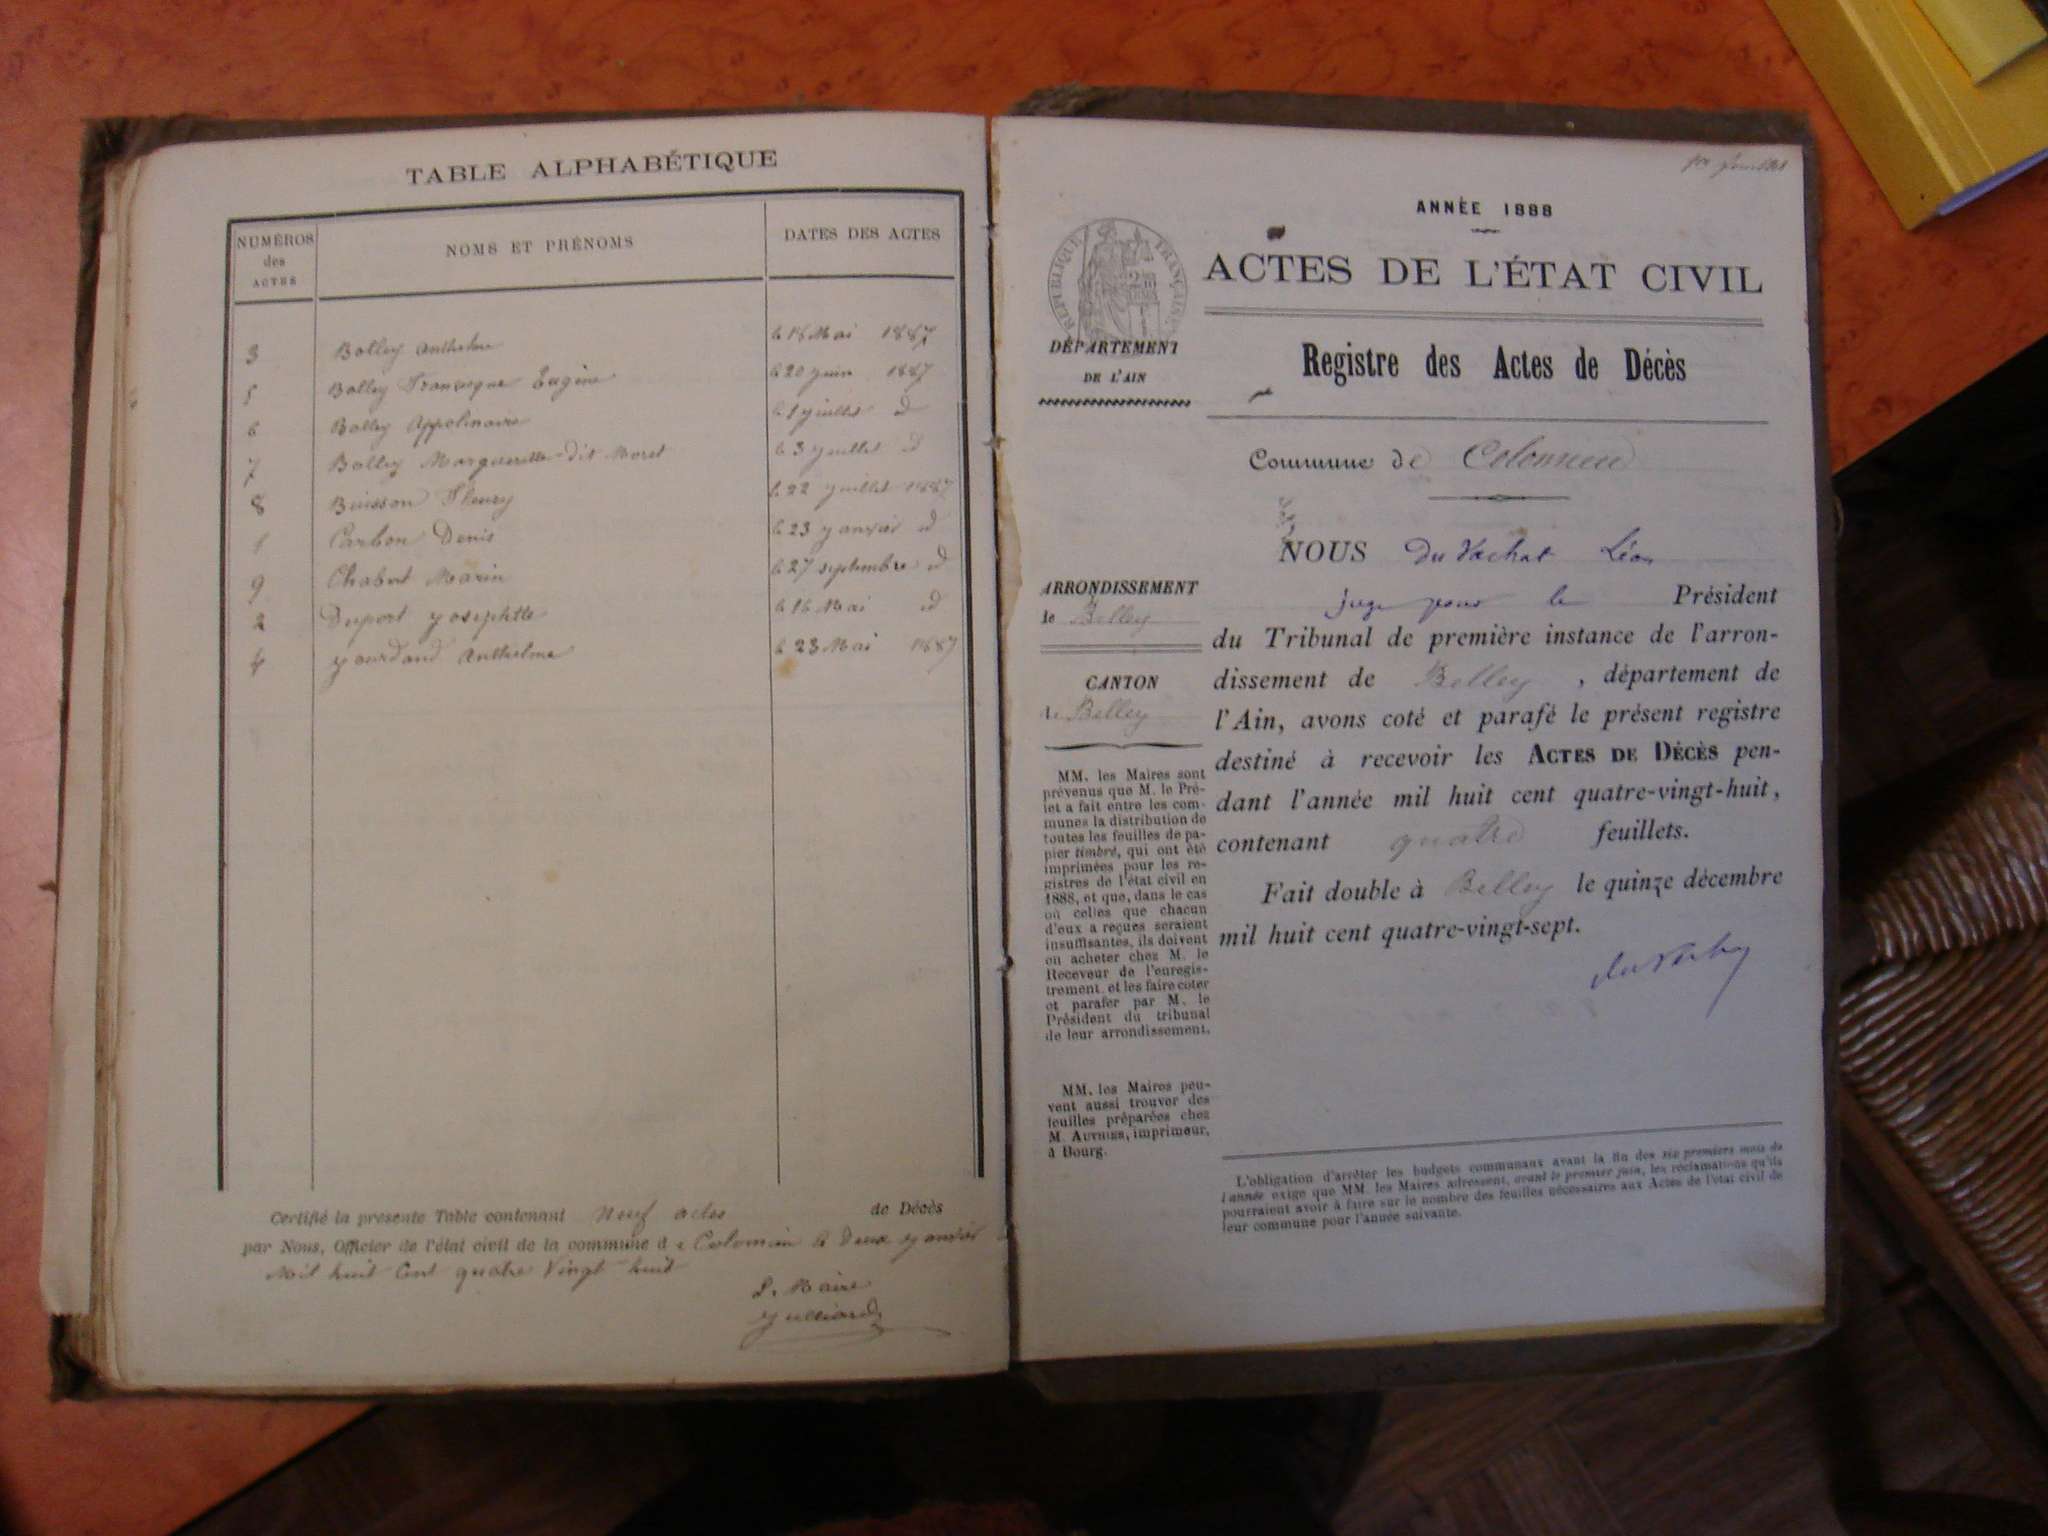 TABLE ALPHABÉTIQUE
NUMÉROS des ACTES
NOMS ET PRÉNOMS
DATES DES ACTES
3 Bolley Anthelme le 18 Mai 1887
5 Bolley Francisque Eugène le 20 juin 1887
6 Bolley Appolinaire le 1 juillet d
7 Bolley Margueritte dit Moret le 3 juillet d
8 Buisson Fleury le 22 juillet 1887
1 Carbon Denis le 23 janvier d
9 Chabert Marin le 27 septembre d
2 Duport Josephtte le 16 Mai d
4 Jourdand Anthelme le 23 Mai 1887
Certifié la présente Table contenant Neuf actes de Décès
par Nous, Officier de l'état civil de la commune d e Colomieu le Deux Janvier
Mil huit Cent quatre Vingt huit
Le Maire
Julliard
1er feuillet
ANNÉE 1888
RÉPUBLIQUE FRANÇAISE
ACTES DE L'ÉTAT CIVIL
DÉPARTEMENT
DE L'AIN
Registre des Actes de Décès
Commune de Colomieu
NOUS Du Vachat Léon
juge pour le Président
ARRONDISSEMENT
de Belley
du Tribunal de première instance de l'arron-
dissement de Belley, département de
CANTON
de Belley
l'Ain, avons coté et parafé le présent registre
destiné à recevoir les ACTES DE DÉCÈS pen-
dant l'année mil huit cent quatre-vingt-huit,
contenant quatre feuillets.
Fait double à Belley le quinze décembre
mil huit cent quatre-vingt-sept.
du Vachat
MM. les Maires sont
prévenus que M. le Pré-
fet a fait entre les com-
munes la distribution de
toutes les feuilles de pa-
pier timbré, qui ont été
imprimées pour les re-
gistres de l'état civil en
1888, et que, dans le cas
où celles que chacun
d'eux a reçues seraient
insuffisantes, ils doivent
en acheter chez M. le
Receveur de l'enregis-
trement, et les faire coter
et parafer par M. le
Président du tribunal
de leur arrondissement.
MM. les Maires peu-
vent aussi trouver des
feuilles préparées chez
M. AUTHIER, imprimeur,
à Bourg.
L'obligation d'arrêter les budgets communaux avant la fin des six premiers mois de
l'année exige que MM. les Maires adressent, avant le premier juin, les réclamations qu'ils
pourraient avoir à faire sur le nombre des feuilles nécessaires aux Actes de l'état civil de
leur commune pour l'année suivante.